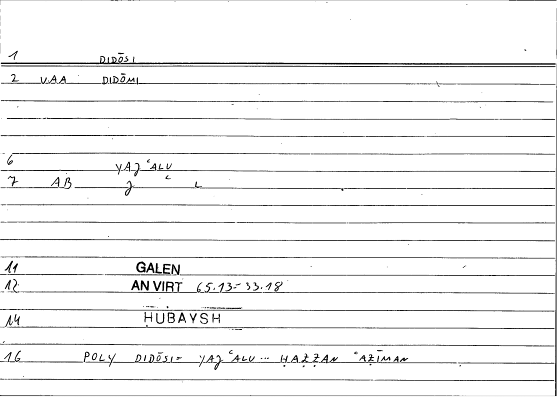 1 DIDŌSI
2 VAA DIDŌMI
6 YAJʿALU
7 AB J ʿ L
11 GALEN
12 AN VIRT 65.13-33.18
14 ḤUBAYSH
16 POLY DIDŌSI= YAJʿALU... ḤAẒẒAN ʿAẒĪMAN